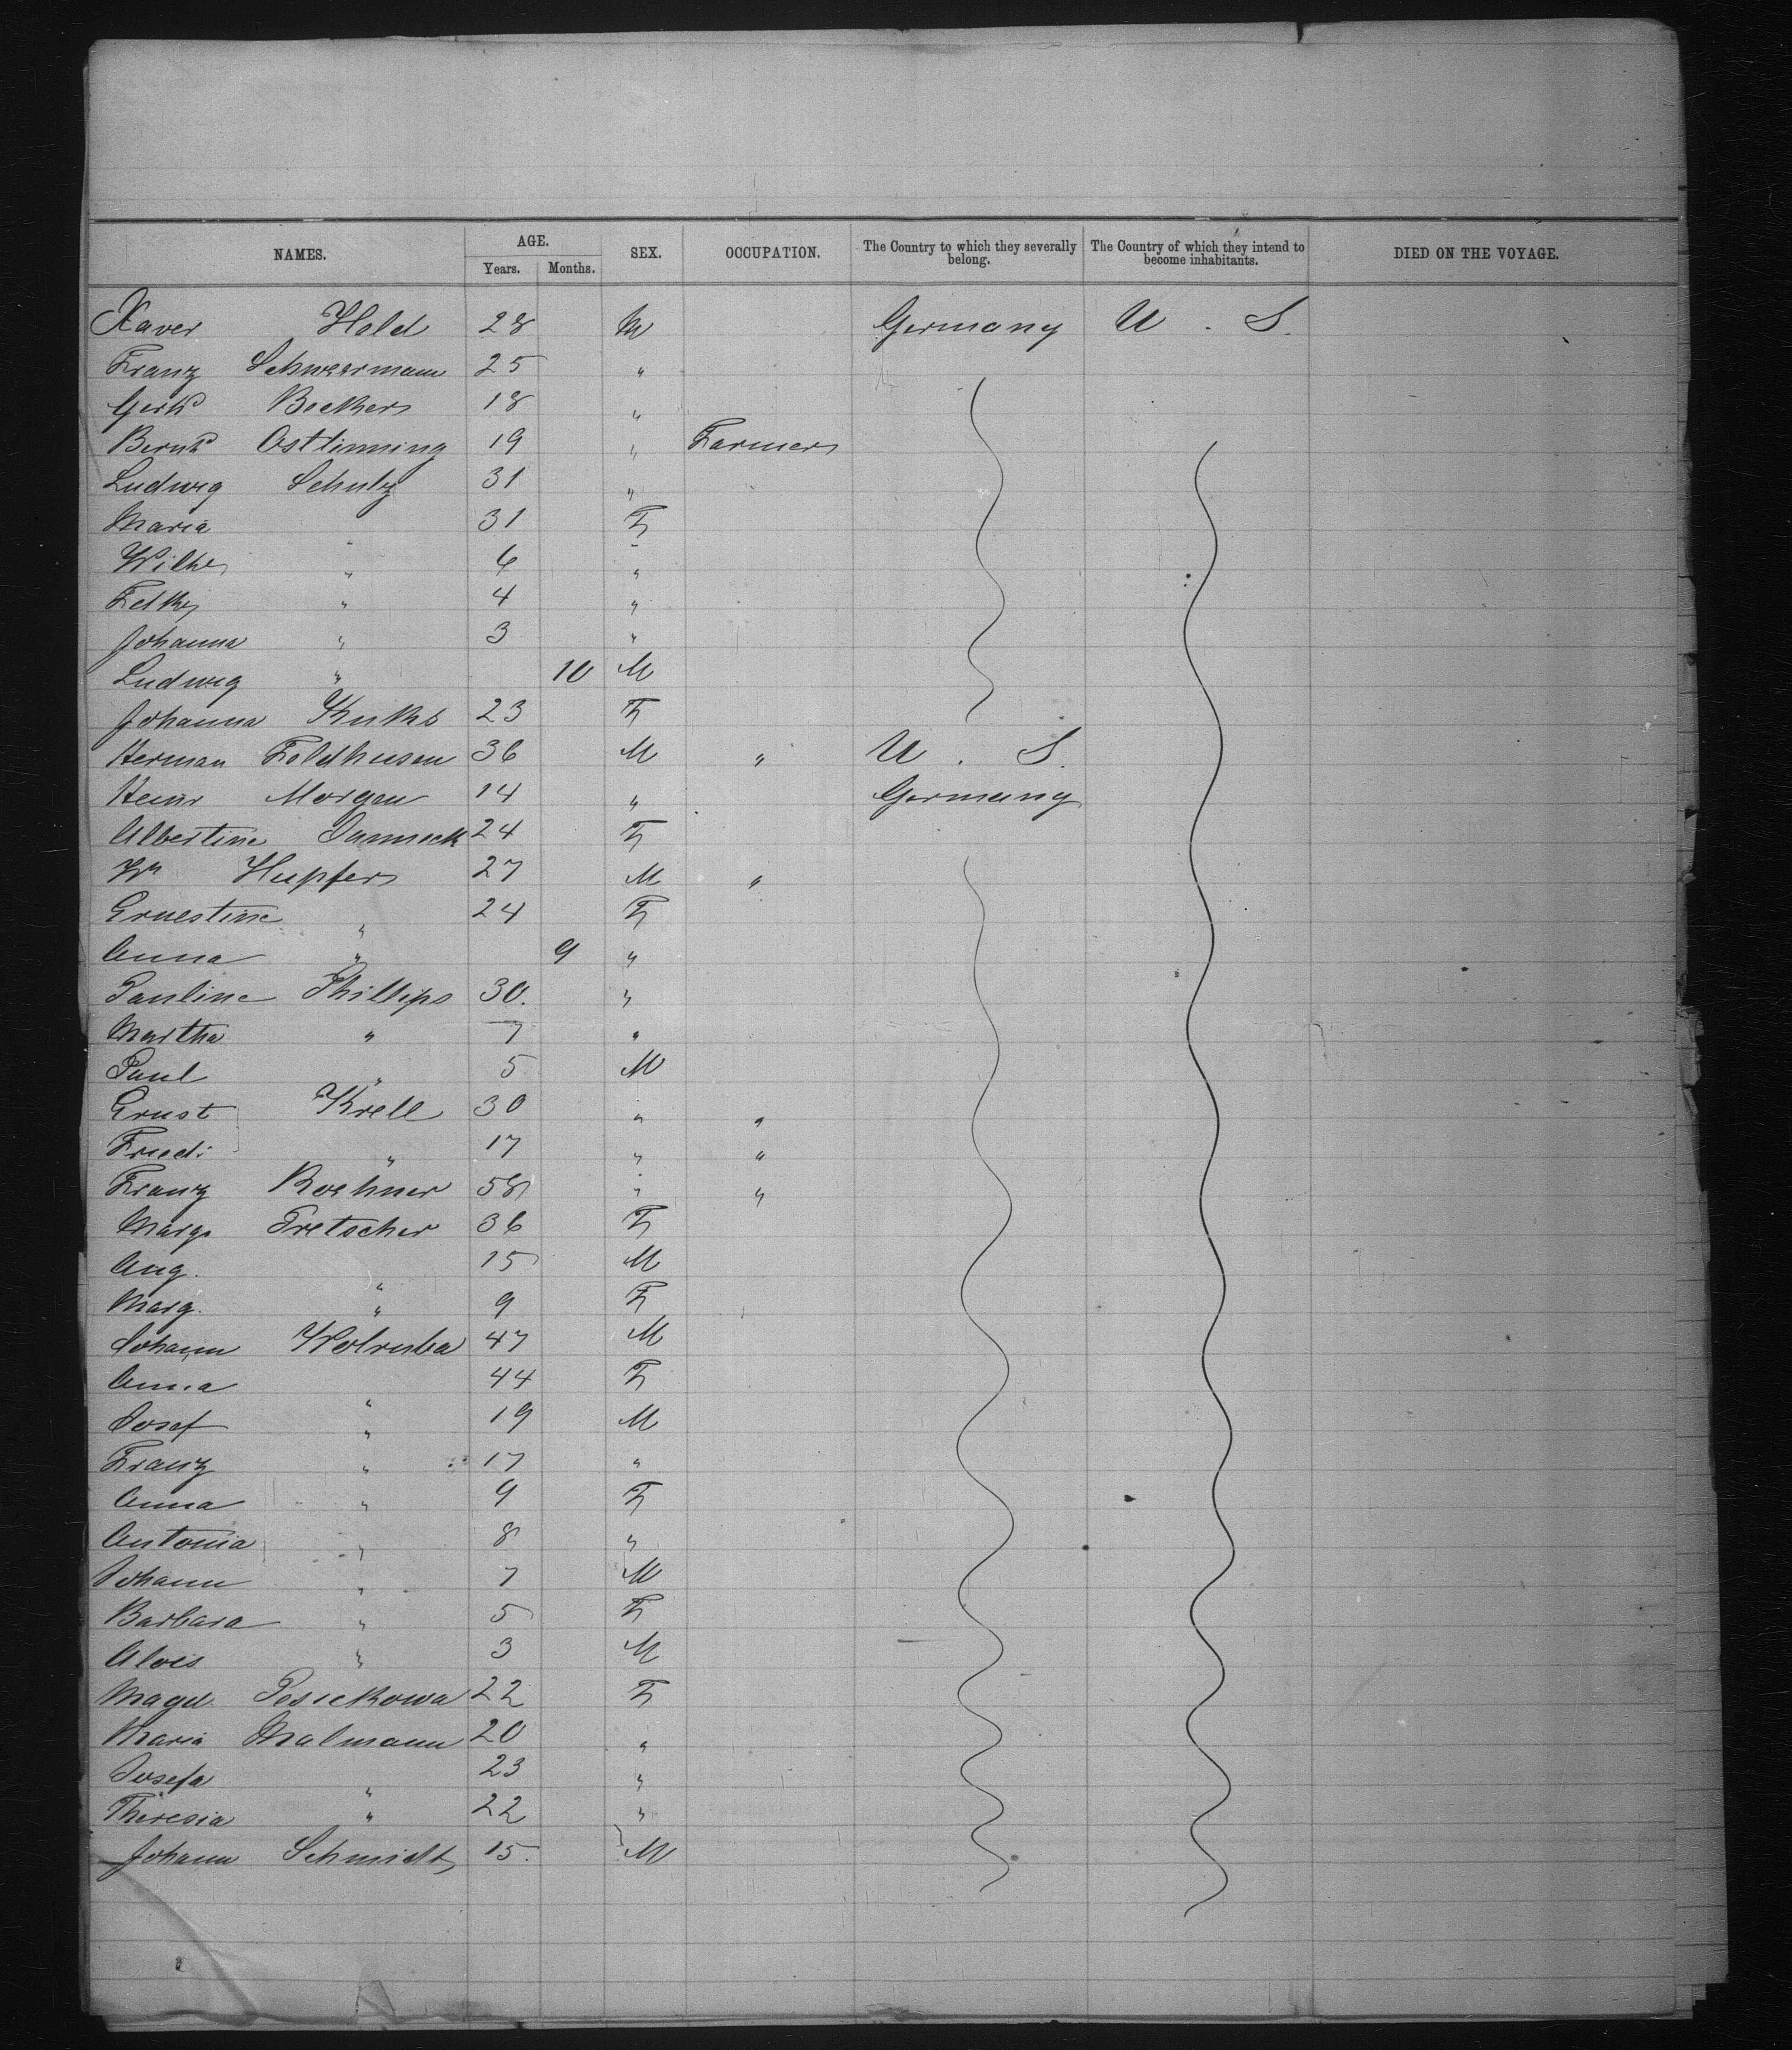 NAMES. AGE. SEX. OCCUPATION. The Country to which they severally belong. The Country of which they intend to become inhabitants. DIED ON THE VOYAGE.
Years. Months.
Xaver Hold 28 M Germany U. S.
Franz Schweermann 25 "
Gerhd Beckers 18 "
Bernhd Osttinning 19 " Farmers
Ludwig Schulz 31 "
Maria " 31 F
Wilhe " 6 "
" 4 "
Johanna " 3 "
Ludwig " 10 M
Johanna 23 F
Herman Feldhusen 36 M " U. S.
Heinr Morgen 14 " Germany
Albertine 24 F
Wm Hupfers 27 M "
Ernestine " 24 F
Anna " 9 "
Pauline Phillips 30. "
Martha " 7 "
Paul " 5 M
Ernst Krell 30 " "
Friedr " 17 " "
Franz Roehner 58 " "
Marg. Pretscher 36 F
Aug. " 15 M
Marg. " 9 F
Johann Wolruba 47 M
Anna " 44 F
Josef " 19 M
Franz " 17 "
Anna " 9 F
Antonia " 8 "
Johann " 7 M
Barbara " 5 F
Alois " 3 M
Magd. Pesickowa 22 F
Maria Malmann 20 "
Josefa " 23 "
Theresia " 22 "
Johann Schmidt 15. M